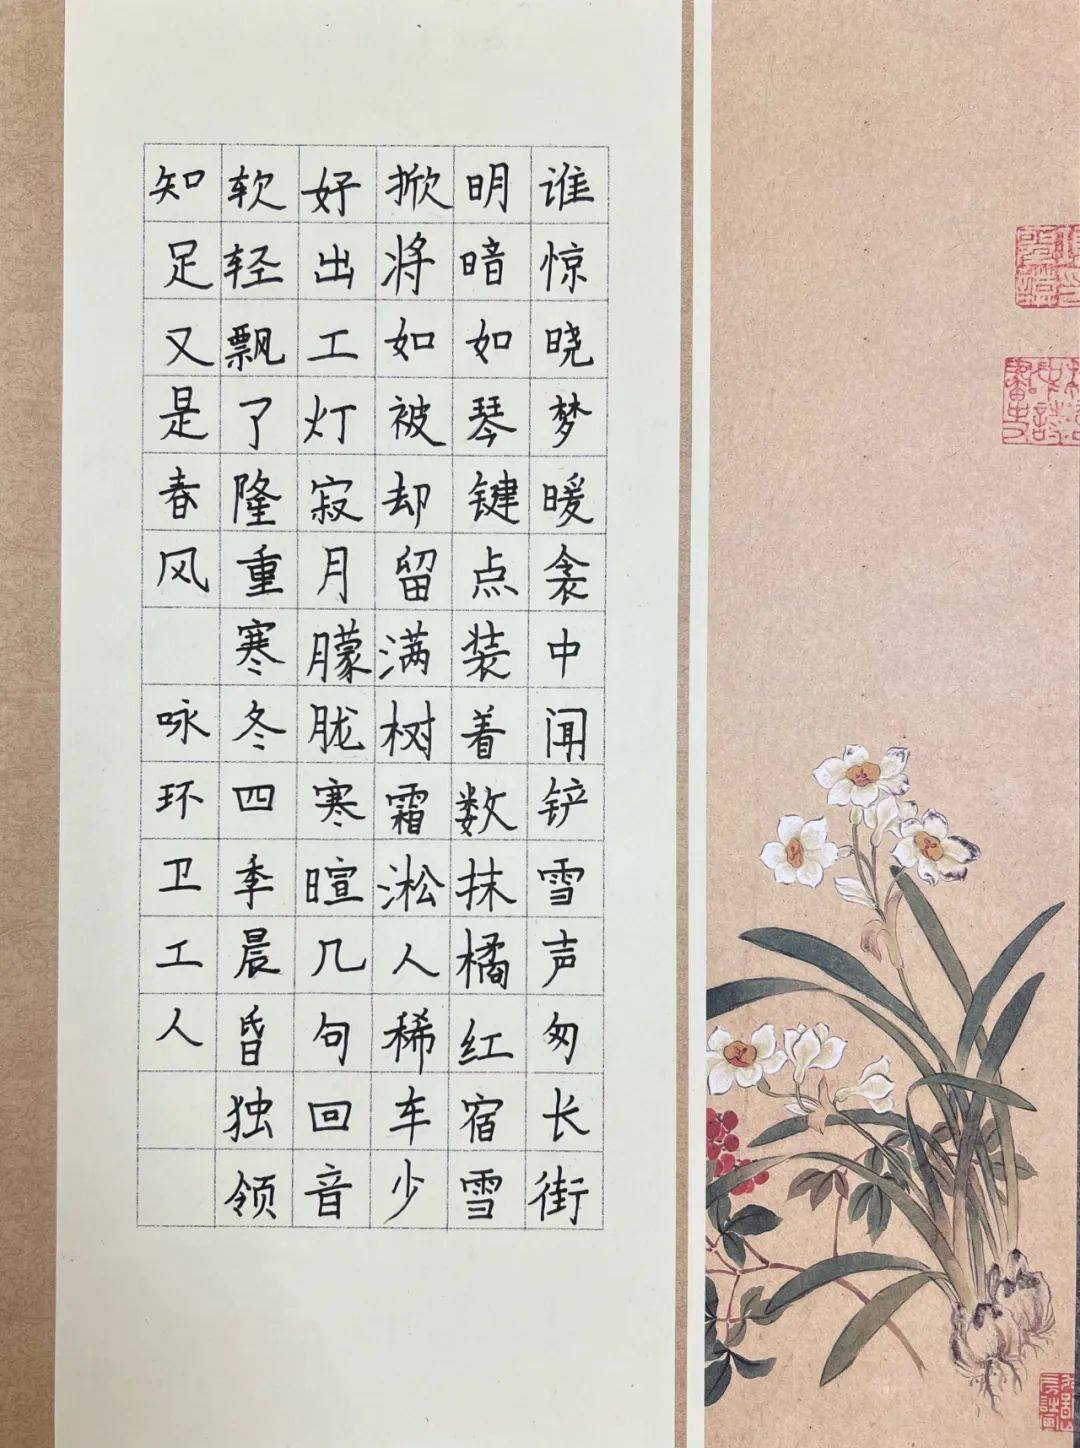 谁惊晓梦暖衾中闻铲雪声匆长街
明暗如琴键点装着数抹橘红宿雪
掀将如被却留满树霜淞人稀车少
好出工灯寂月朦胧寒暄几句回音
软轻飘了隆重寒冬四季晨昏独领
知足又是春风 咏环卫工人